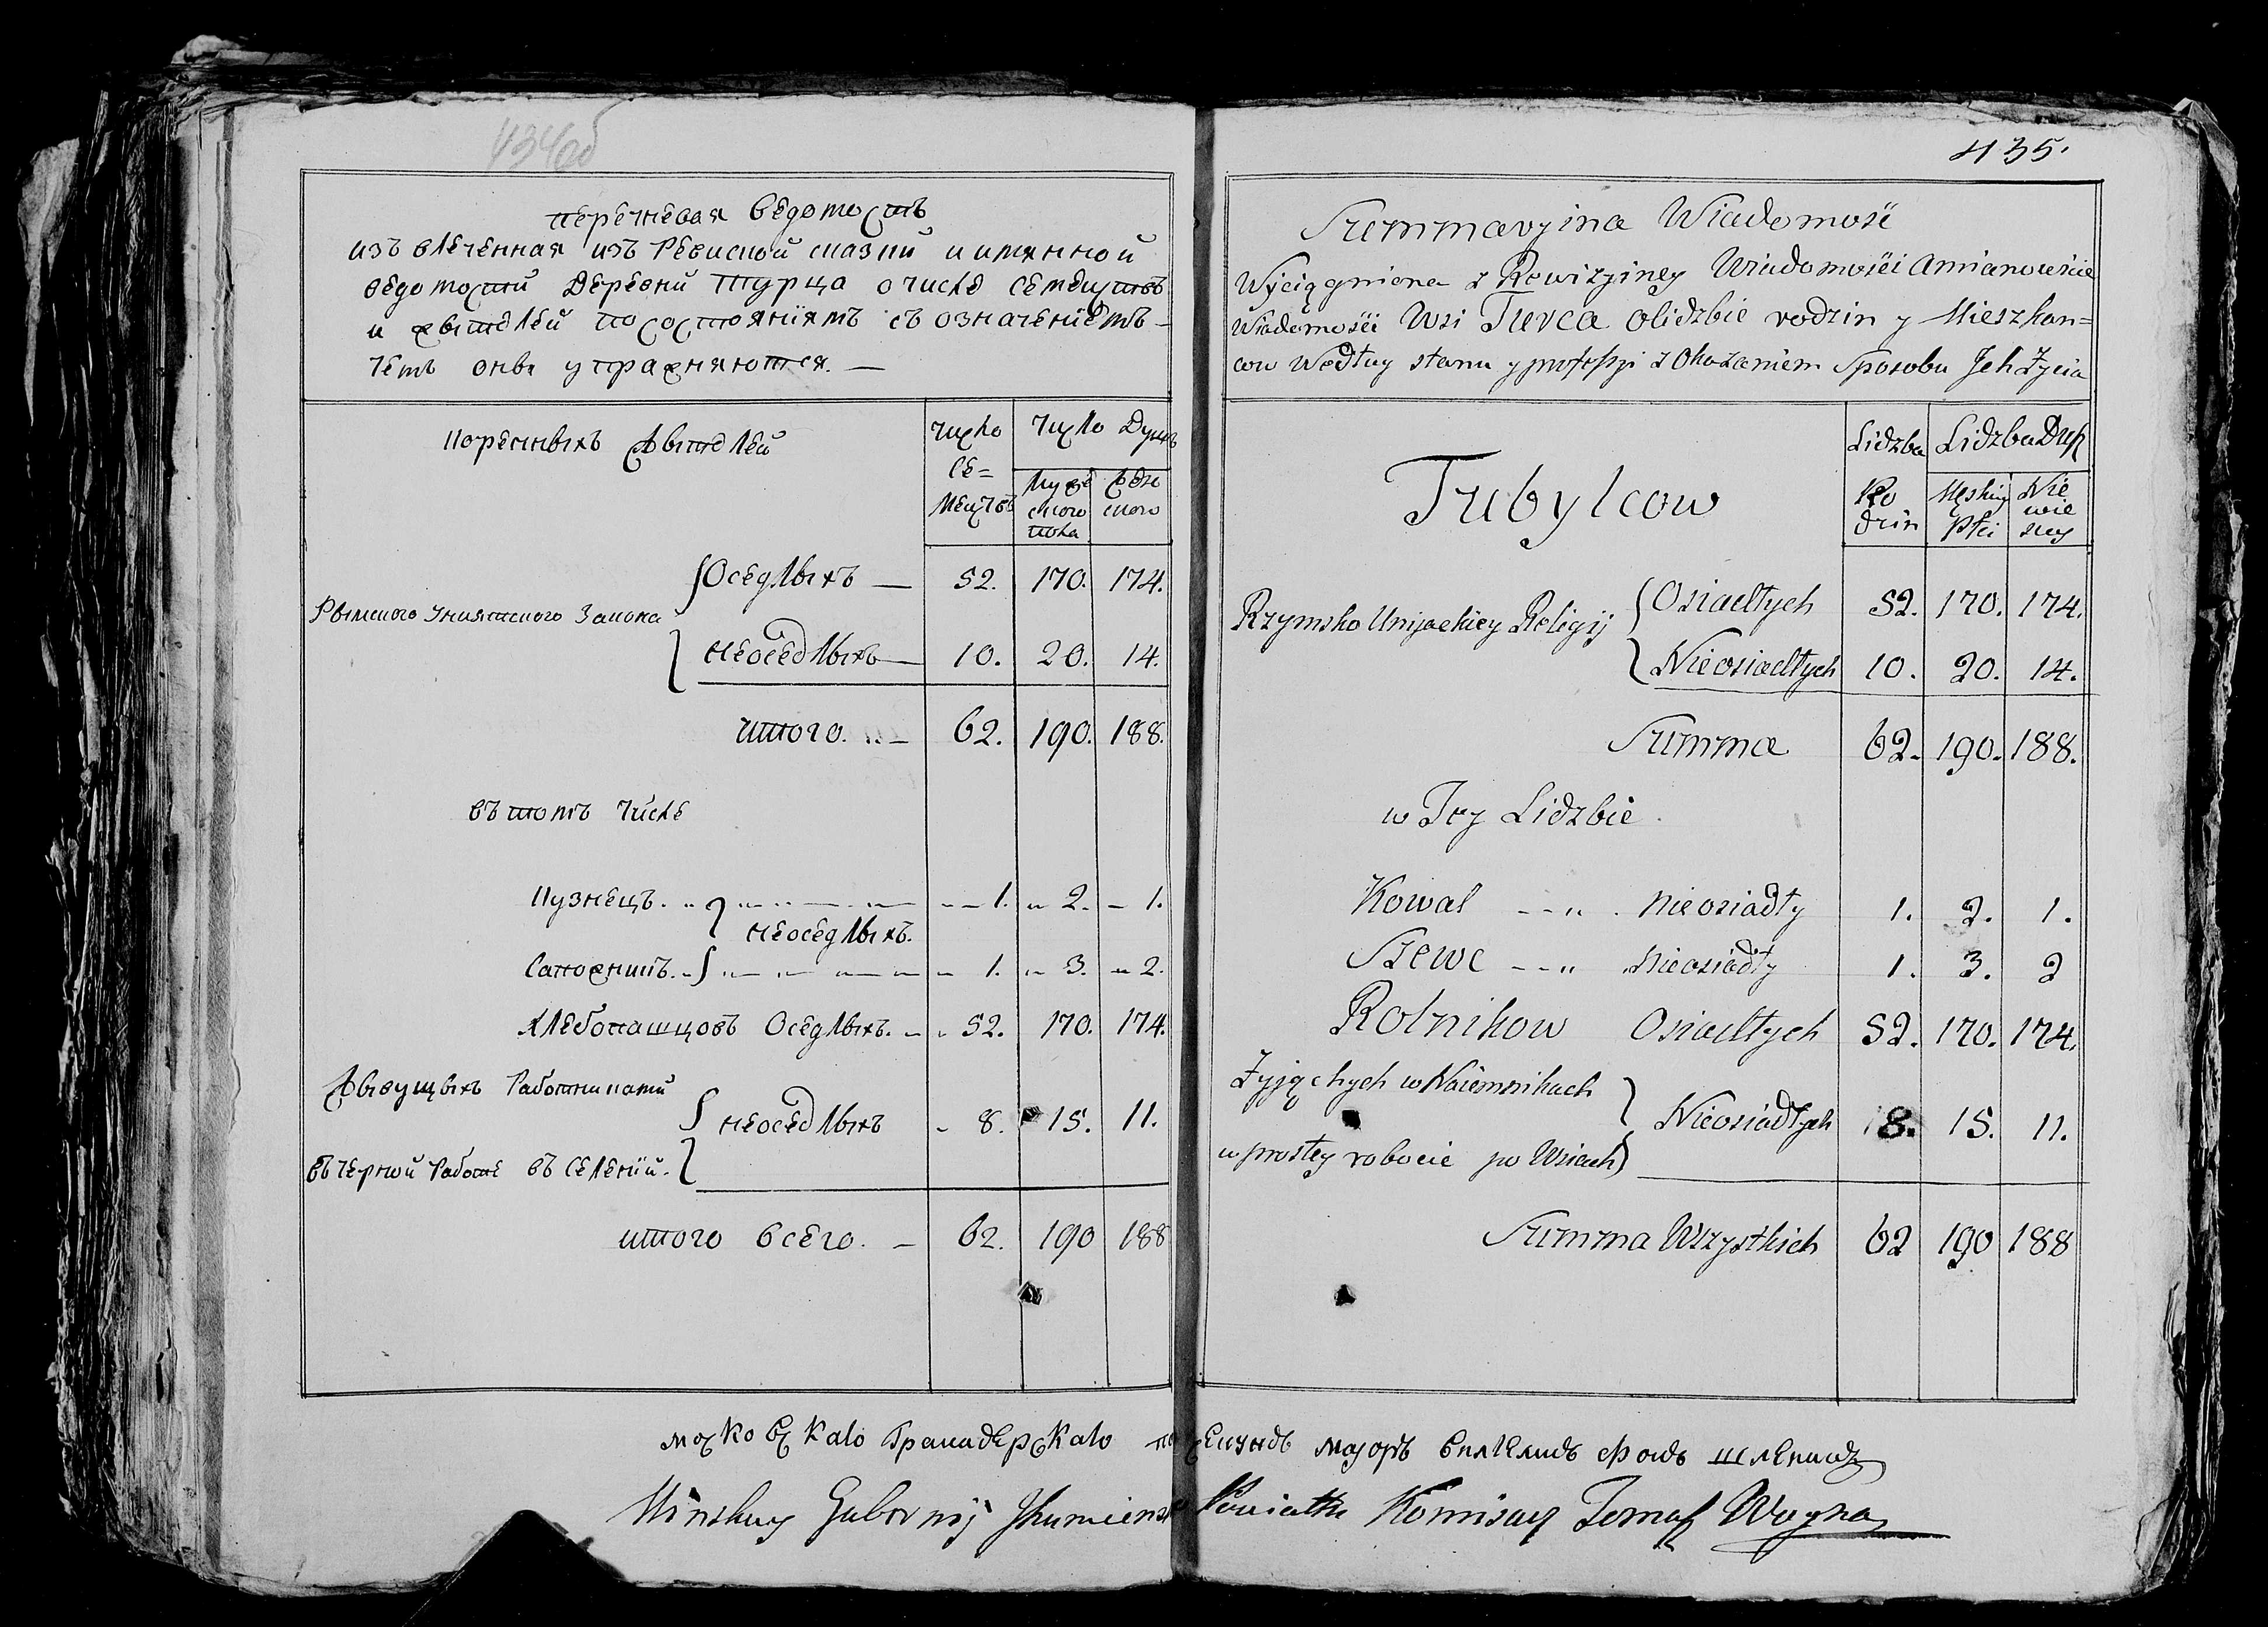 434об
перечневая ведомость
изъ влеченная изъ Ревиской сказки и имянной
ведомости Деревни Турца о числе семеиствъ
и жителей по состояниямъ съ означениемъ
чемъ оные упражняются. —
коренныхъ жителей
число се= меиствъ
число Душъ
мужескаго пола
женскаго
Рымского Униятского Закона
Оседлыхъ — 52. 170. 174.
неоседлыхъ — 10. 20. 14.
итого. — 62. 190. 188.
въ томъ числе
Кузнецъ. 1. 2. 1.
неоседлыхъ.
Сапожникъ. 1. 3. 2.
хлебопашцовъ Оседлыхъ. — 52. 170. 174.
живущыхъ Работниками
неоседлыхъ 8. 15. 11.
въ черной Работе въ селении.
итого всего. — 62. 190 188
435.
Summaryina Wiadomość
Wyciągniona z Rewizyiney Wiadomości Amianowskie
Wiadomości Wsi Turca o lidzbie rodzin y Mieszkan=
cow Wedłuy stanu y professyi z Okazaniem Sposobu Jch Życia
Tubylcow
Lidzba Ro dzin
Lidzba Dusz
Męskiey Płci
Nie wie sciey
Rzymsko Uniiackiey Religij
Osiadłych 52. 170. 174.
Nieosiadłych 10. 20. 14.
Summa 62. 190. 188.
w Tey Lidzbie.
Kowal nieosiadły 1. 2. 1.
Szewc nieosiadły 1. 3. 2
Rolnikow Osiadłych 52. 170. 174.
Zyjąchych w Naiemnikach
Nieosiadłych 8. 15. 11.
w prostey robocie po Wsiach
Summa Wszystkich 62 190 188
московскаго Гранадерскаго секундъ маіоръ вилгелмъ фонъ
Minskiey Gubernij Jhumiensk Powiatu Komisarz Tomasz Woyna